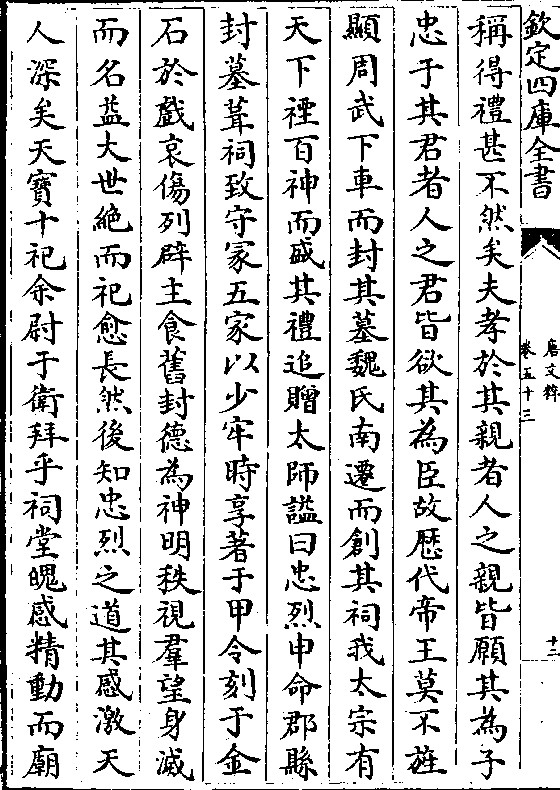 欽定四庫全書
唐文粹
卷五十三
十二
稱得禮甚不然矣夫孝於其親者人之親皆願其為子
忠于其君者人之君皆欲其為臣故歴代帝王莫不旌
顯周武下車而封其墓魏氏南遷而創其祠我太宗有
天下禋百神而盛其禮追贈太師諡曰忠烈申命郡縣
封墓葺祠致守冢五家以少牢時享著于甲令刻于金
石於戲哀傷列辟主食舊封德為神明秩視羣望身滅
而名益大世絶而祀愈長然後知忠烈之道其感激天
人深矣天寶十祀余尉于衛拜乎祠堂魄感精動而廟